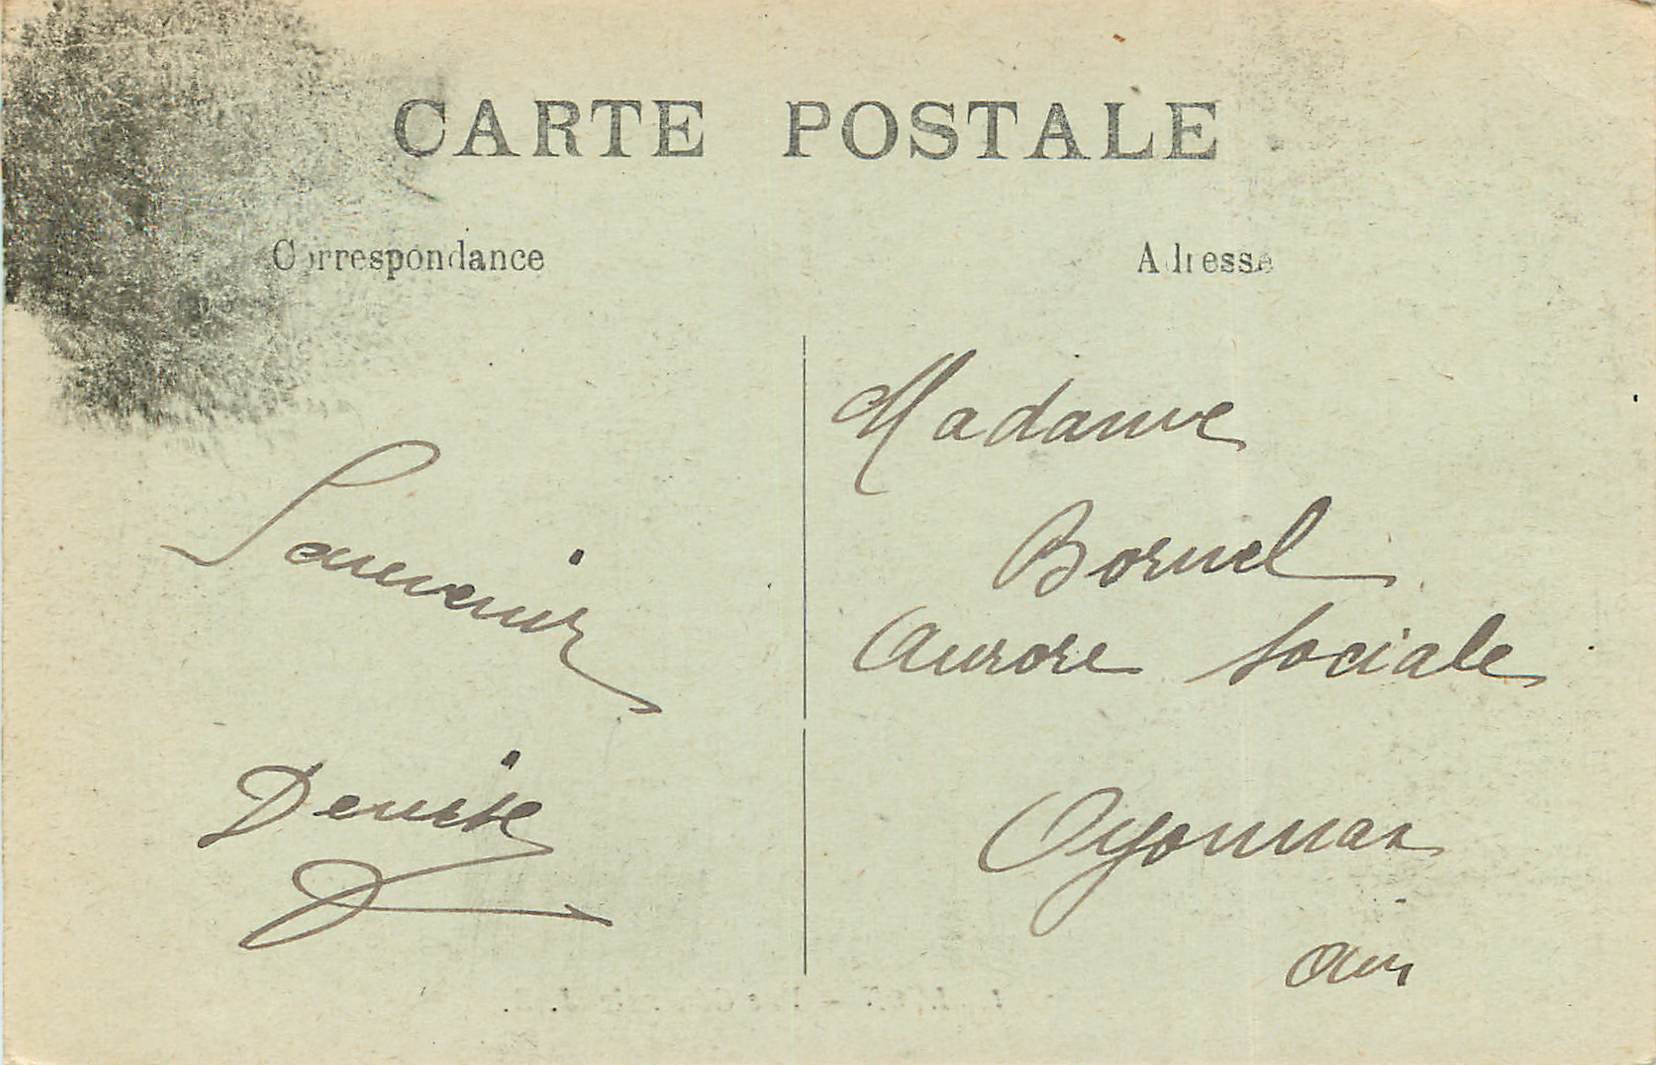 CARTE POSTALE
Correspondance
Adresse
Souvenir
Denise
Madame
Bornel
Aurore Sociale
Oyonnax
Ain